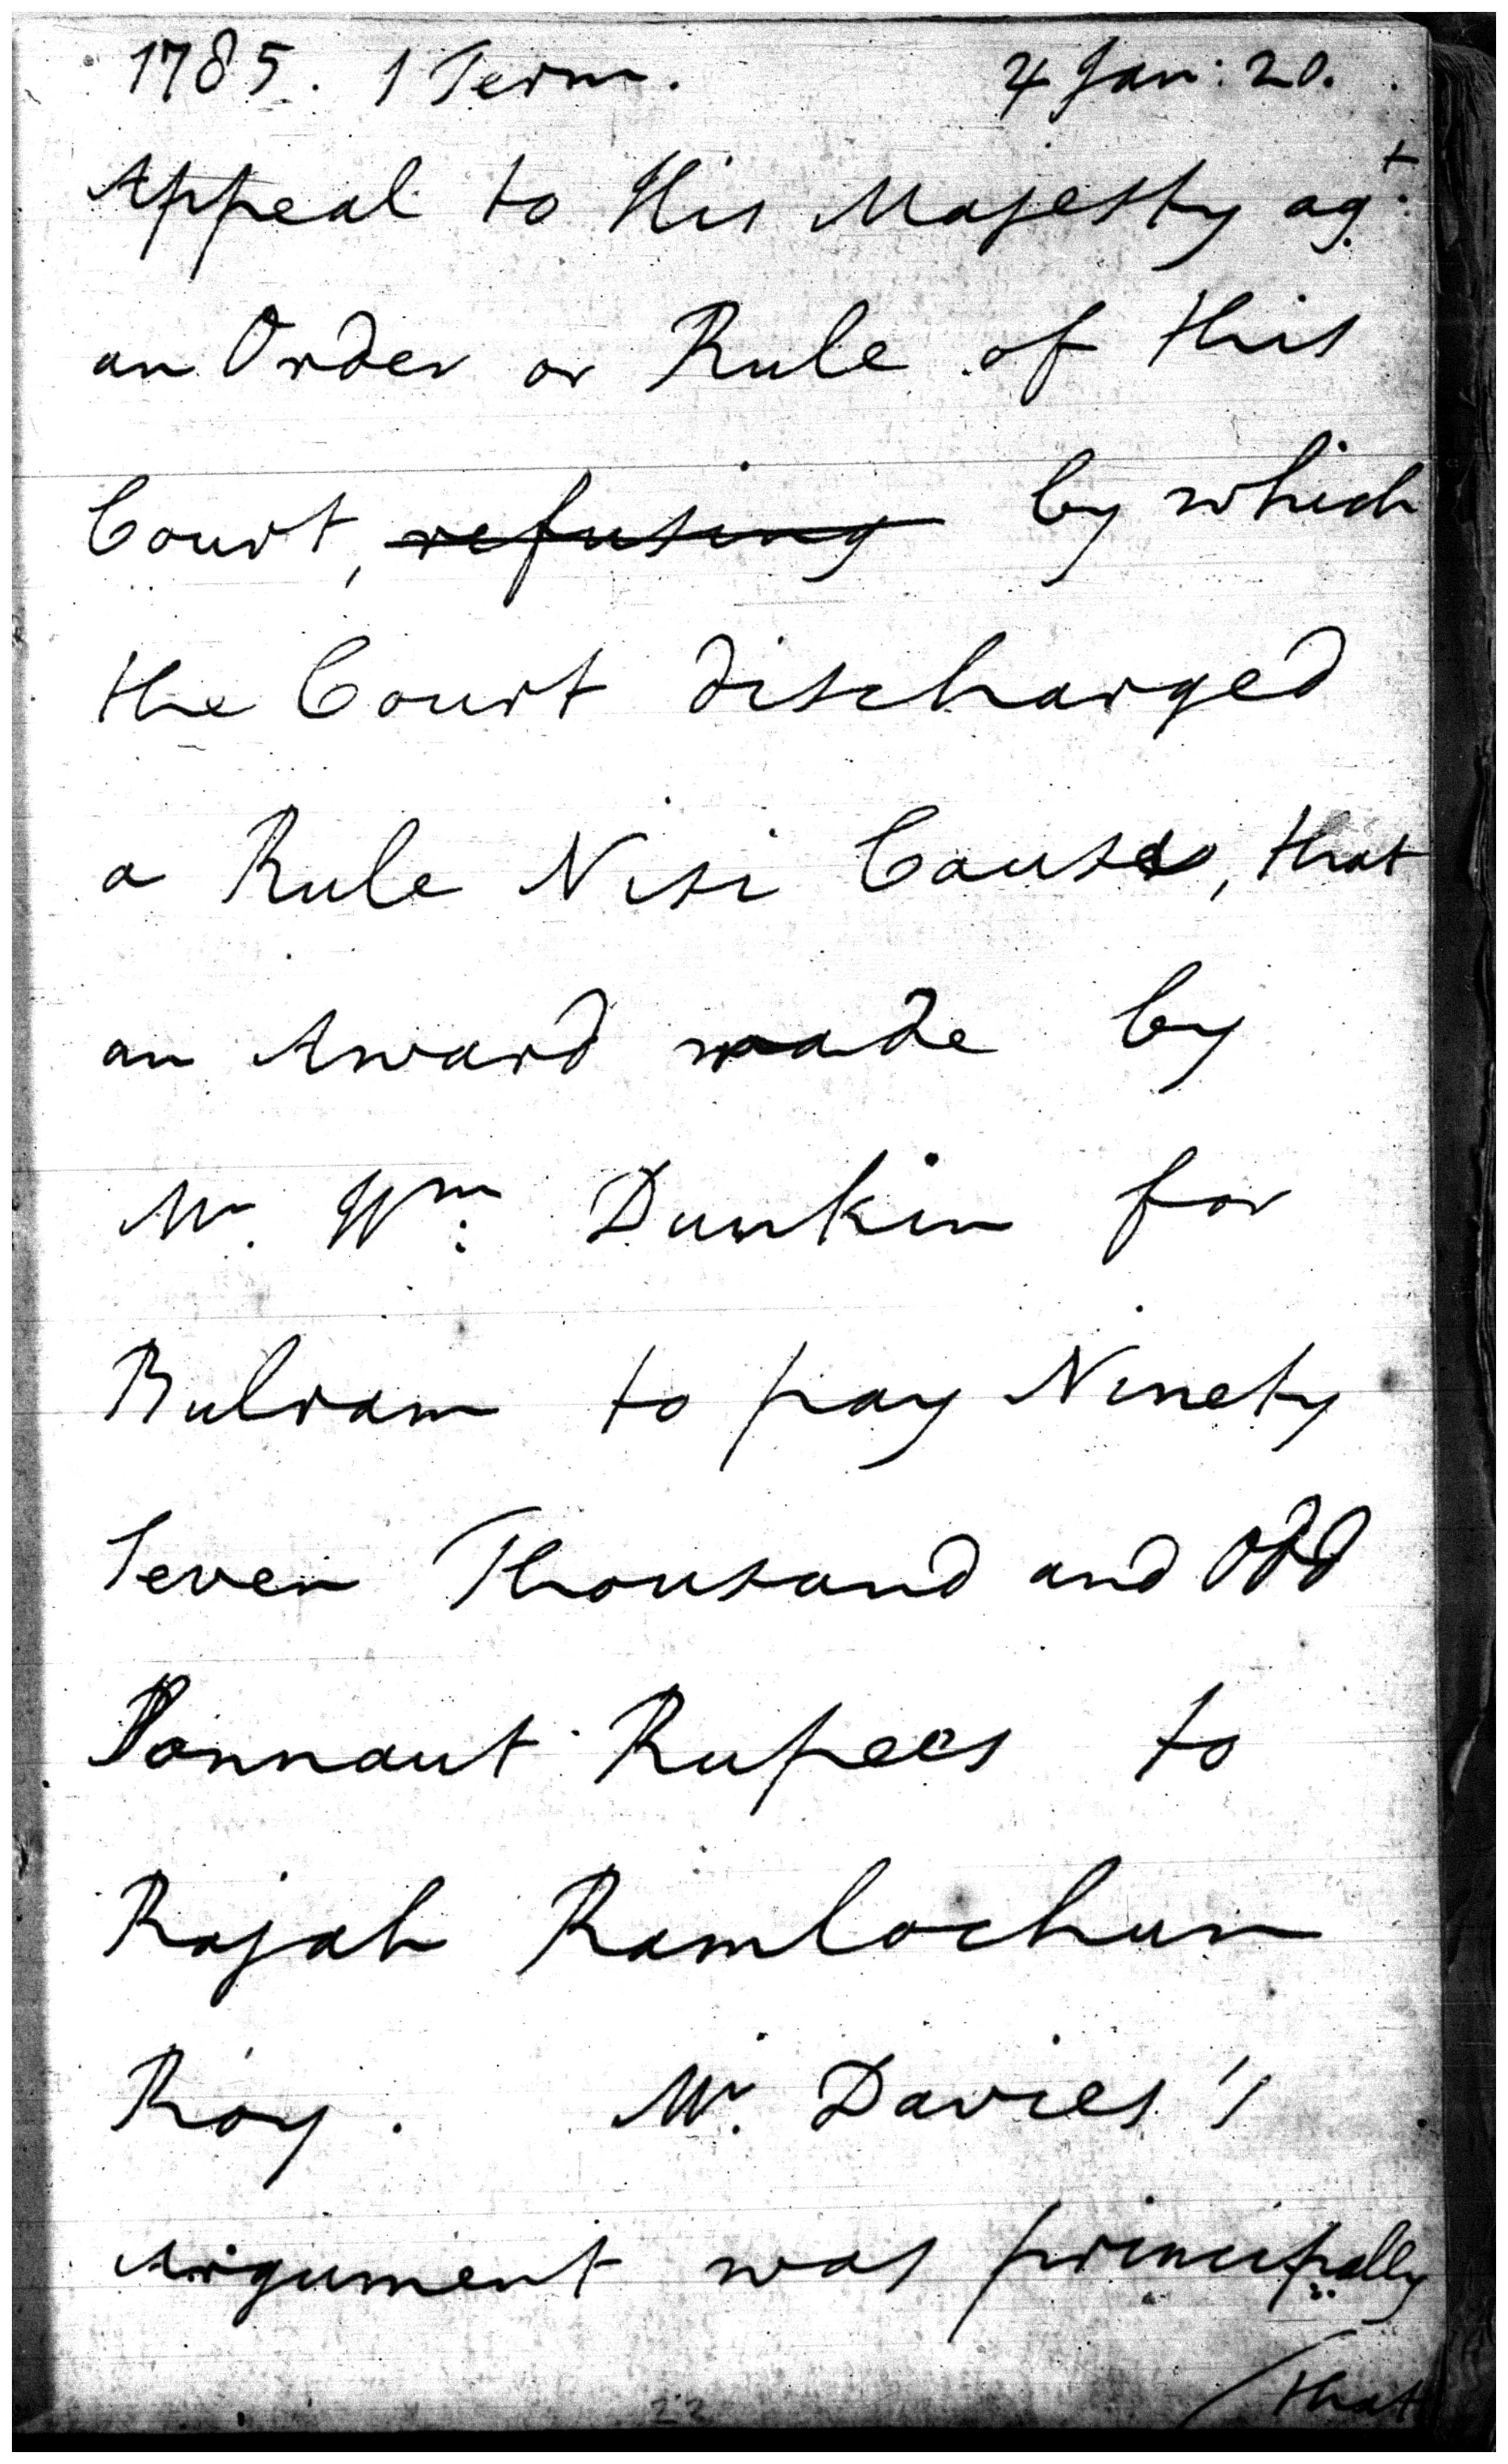 1785. 1 Term. 4 Jan: 20.
Appeal to His Majesty agt.
an Order or Rule of this
Court, refusing by which
the Court discharged
a Rule Nisi Causa, that
an Award made by
Mr. Wm: Dunkin for
Bulram to pay Ninety
Seven Thousand and Odd
Sonnaut Rupees to
Rajah Ramlochun
Roy. Mr. Davies's
Argument was principally
that